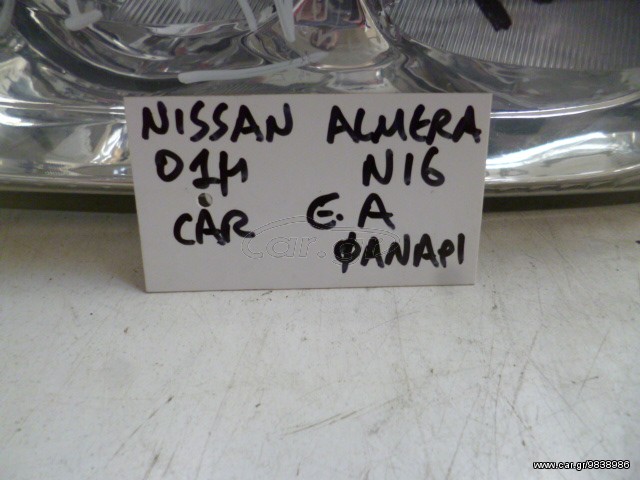 NISSAN ALMERA
01μ N16
CAR E.A
ΦΑΝΑΡΙ
car.gr
www.car.gr/9838986